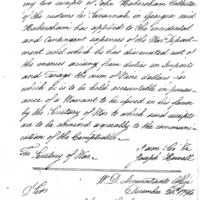 my two receipts of John Habersham Collector
of the customs in Savannah in Georgia said
Habersham has applied to the incidental
and contingent expences of the War Depart-
ment and which he has discounted out of
the monies arising from duties on Imports
and Tonnage the sum of Nine dollars for
which he is to be held accountable in pursu-
ance of a Warrant to be issued in his favor
by the Secretary of War to which said receipts
are to be annexed agreeably to the communi-
cation of the Comptroller
I am Sir &c
The Secretary of War Joseph Howell
W. D. Accountants Office
Sir December 1794